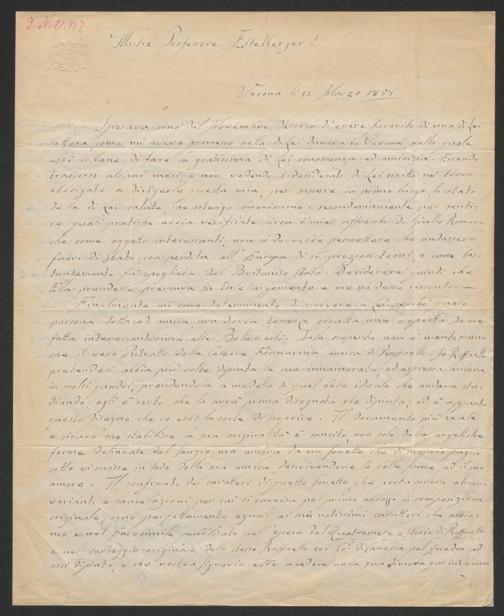 I. N. 21.417
Illustre Professore Eitelberger!
Verona li 12. Marzo 1858
Sperava sino dal Novembre decorso di essere favorito di una di Lei
lettera come mi aveva promesso nella di Lei dimora in Verona nella quale
ebbi il bene di fare la gratissima di Lei conoscenza ed amicizia. Essendo
trascorsi alcuni mesi e non vedendo i desiderati di Lei scritti mi trovo
obbligato a dirigerle questa mia per sapere in primo luogo lo stato
della di Lei salute, che ritengo buonissimo, e secondariamente per senti-
re quali pratiche abbia verificate circa i miei affreschi di Giulio Romano
che come oggetti interessanti, non si dovrebbe permettere che andassero
fuori di Stato con perdita all' Europa di si preziosi tesori, e come
tantemente fu spogliata dal Britannico Stato. Desidererei quindi che
Ella prendesse premura in tale argomento e me ne desse riscontro —
Finalmente mi sono determinato di scrivere a Lei perchè quale
persona dotta ed amica, non dovea tenerle occulta una scoperta da me
fatta interessantissima alle Belle arti. Tale scoperta non è niente meno
che il vero Ritratto della celebre Fornarina amica di Raffaello. Se Raffaello
pretendesi abbia più volte dipinta la sua innamorata ed espressa ancora
in molti quadri, prendendola a modello di quel bello ideale che andava stu-
diando, egli è certo che la avrà prima disegnata che dipinta, ed è appunto
questo disegno che io ebbi la sorte di scoprire. Il documento più reale
e sicuro che stabilisce la sua originalità è sancito non solo dalle angeliche
forme delineate dal Sanzio, ma ancora da un sonetto che di proprio pugno
sotto vi scrisse in lode della sua amica, descrivendone le belle forme, ed il suo
amore. Il confronto dei caratteri di questo sonetto che porta ancora alcune
varianti e cancellazioni per cui si ravvisa pel primo abbozzo di composizione
originale, sono perfettamente eguali ai suoi notissimi caratteri che abbia-
mo e nel Facsimile pubblicato nell' opera del Quatremere = Storia di Raffaello
e nel carteggio originale dello stesso Raffaello coi di Canossa pel Quadro ad
essi dipinto, e che vostra signoria ebbe a vedere nella sua dimora qui in Verona